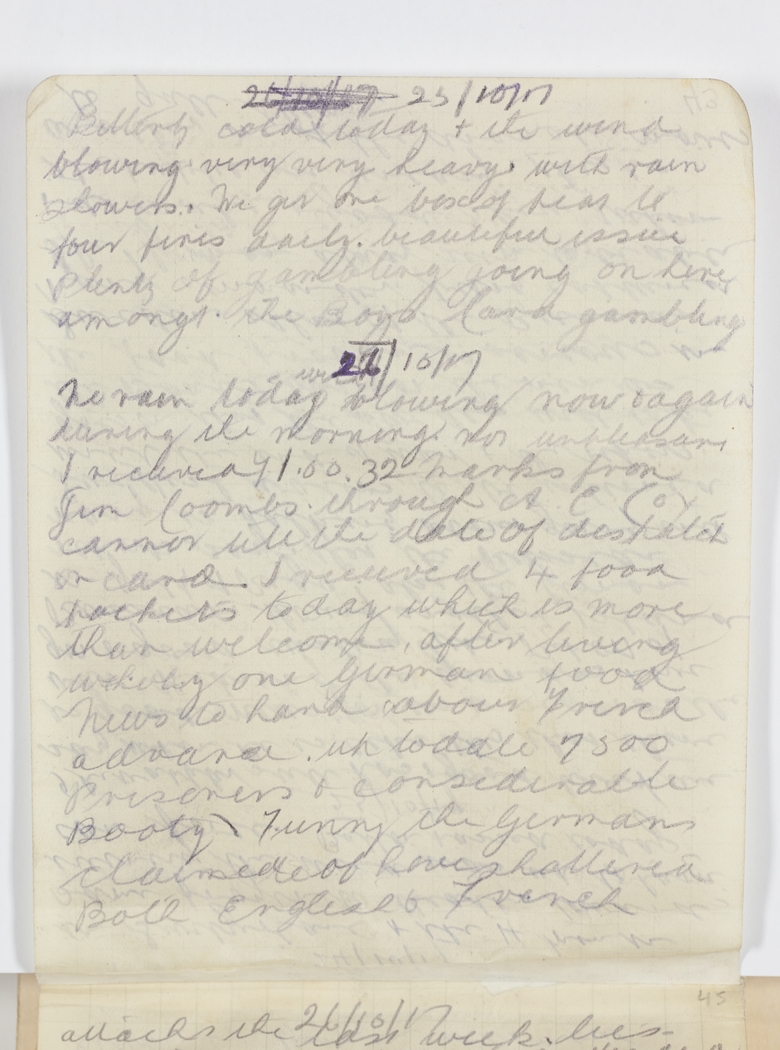 25/10/17
Bitterly cold today + the wind
blowing very very heavy. with rain
showers. We get one box of peat to
four fires daily. beautiful issue
plenty of gambling going on here
amongst the Boys Card gambling
26/10/17
No rain today wind blowing now & again
during the morning. not unpleasant
I received 1.00.32 Marks from
Jim Coombs. through A. C (o)
cannot tell the date of despatch
on card. I received 4 food
packets today which is more
than welcome, after living
wholly one German food
News to hand about French
advance. up to date 7500
Prisoners & considerable
Booty) Funny the Germans
claimed to have shattered
Both English & French
45
26/10/17
attacks the last week. lies-